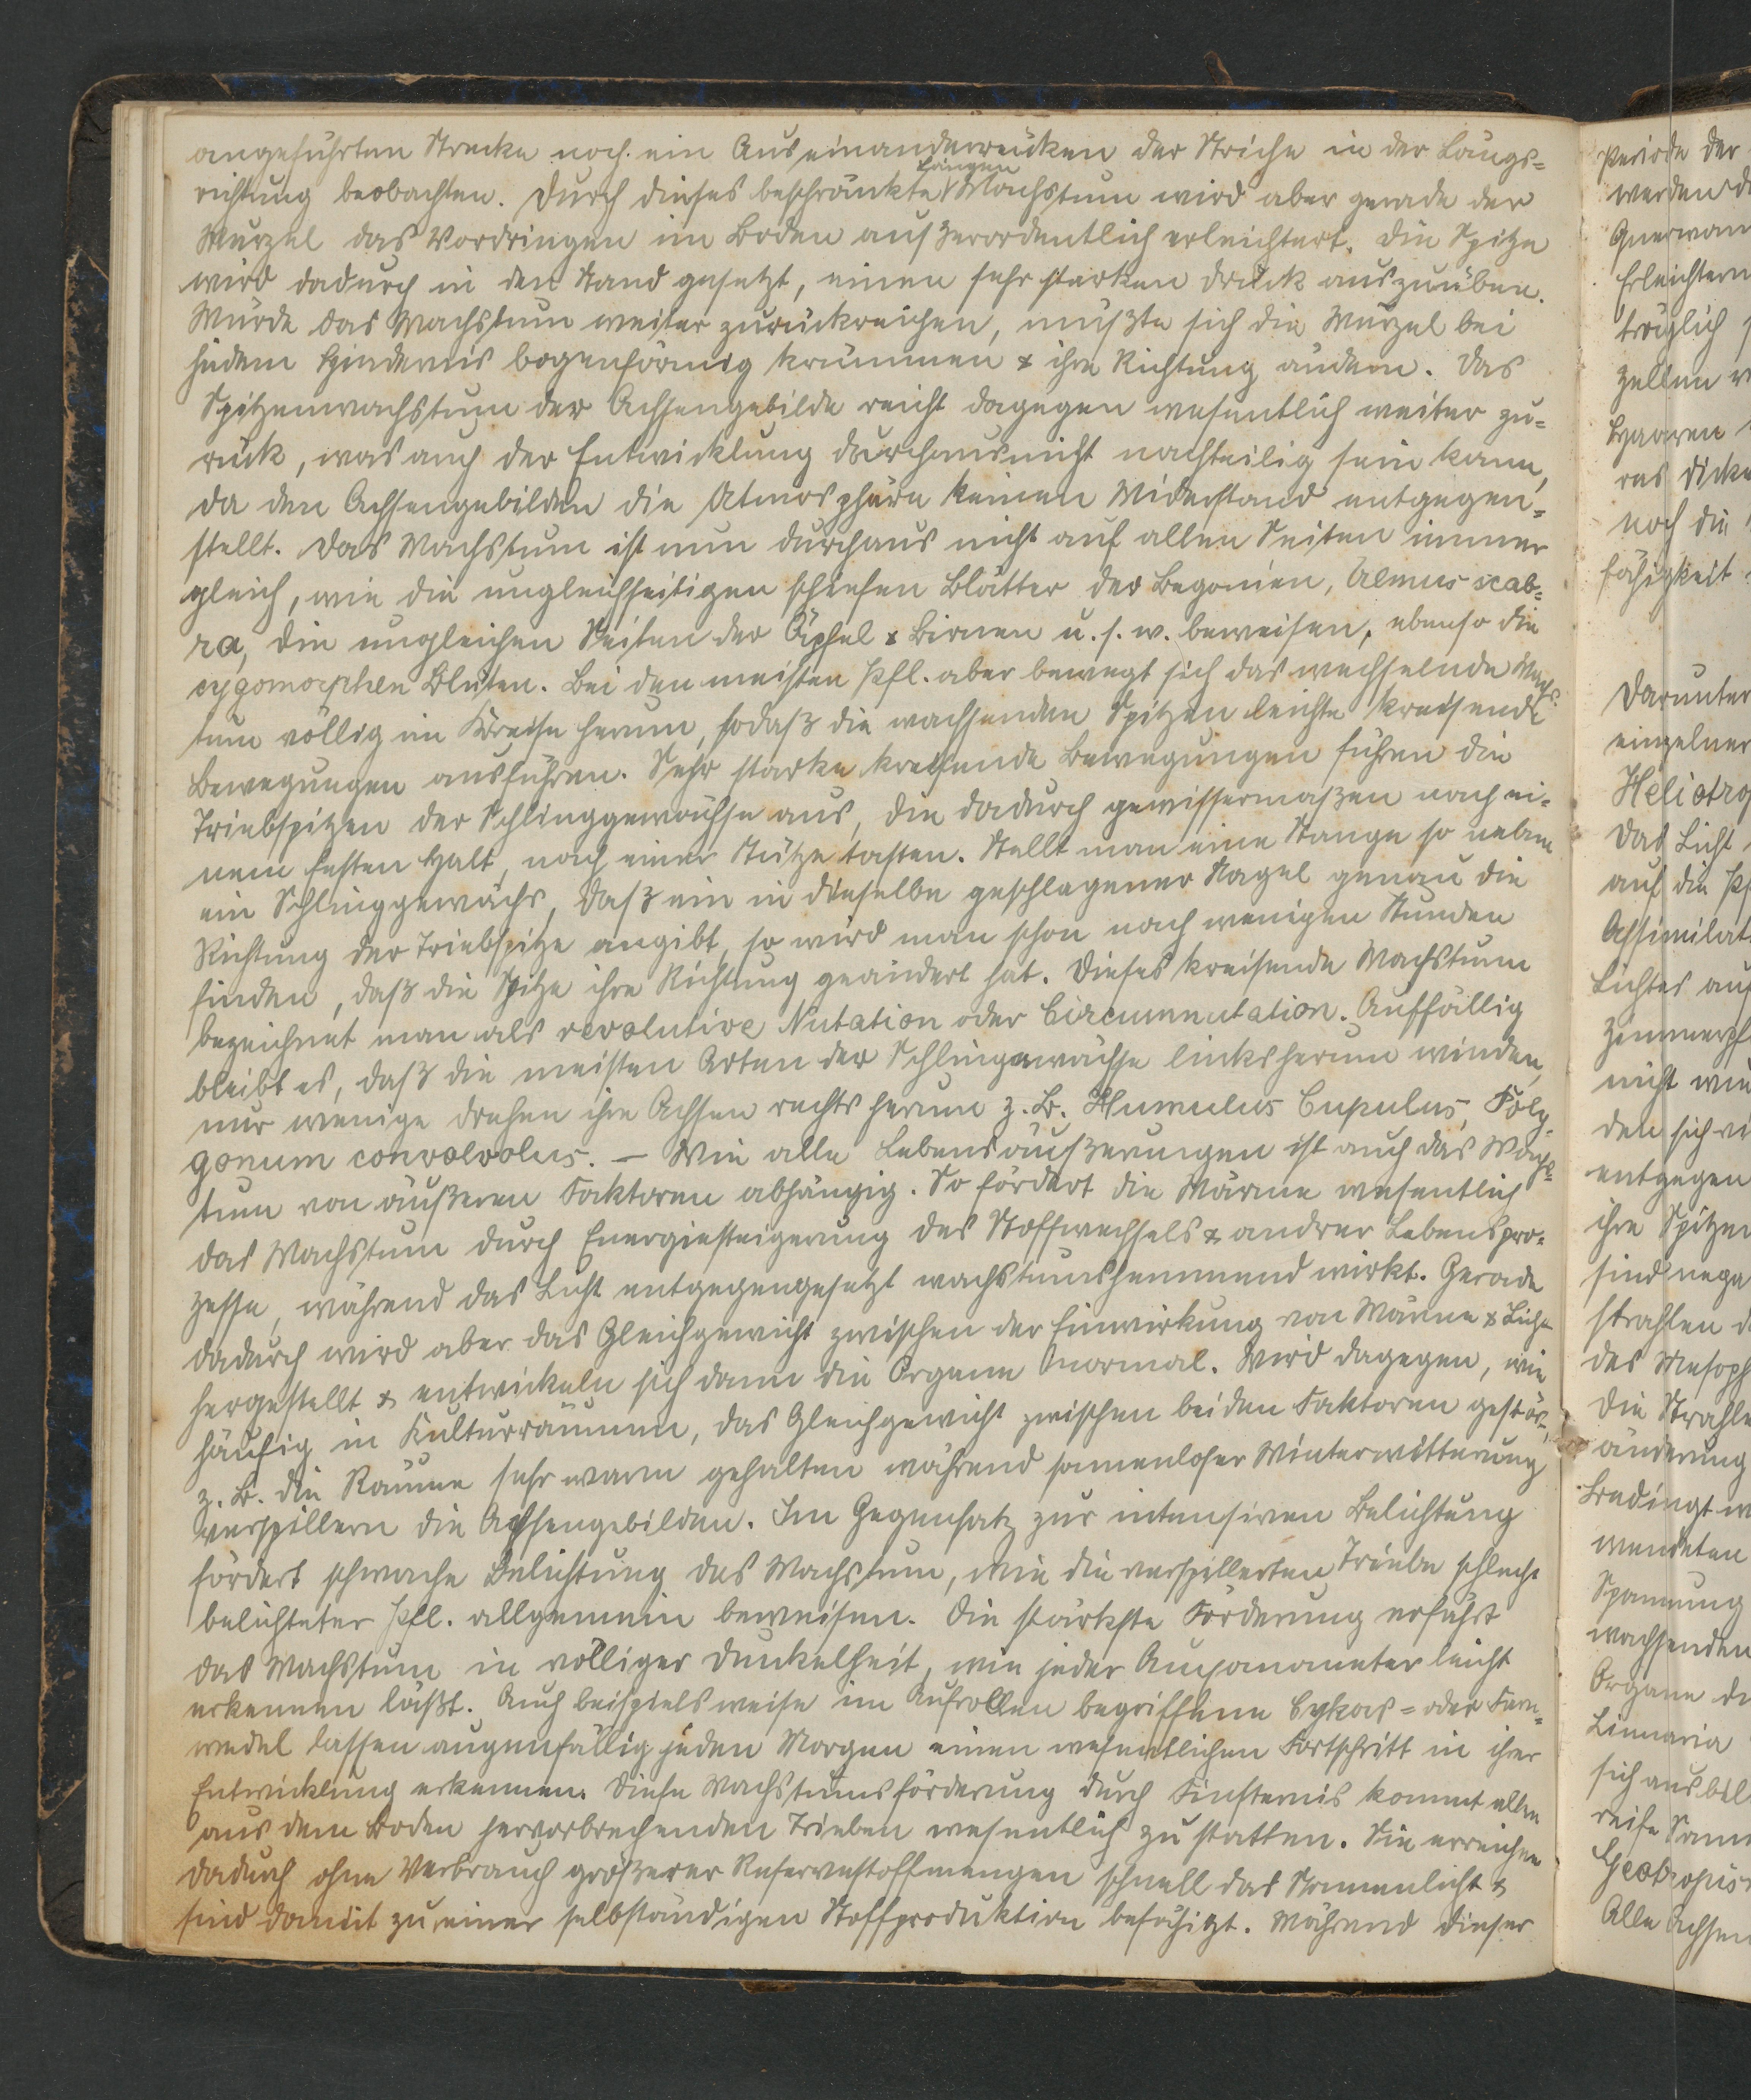 angeführten Strecke noch ein Auseinanderrücken der Striche in der Längs=
richtung beobachten. Durch dieses beschränkte Längen Wachstum wird aber gerade der
Wurzel das Vordringen im Boden außerordentlich erleichtert. Die Spitze
wird dadurch in den Stand gesetzt, einen sehr starken Druck auszuüben.
Würde das Wachstum weiter zurückreichen, müßte sich die Wurzel bei
jedem Hindernis bogenförmig krümmen & ihre Richtung ändern. Das
Spitzenwachstum der Achsengebilde reicht dagegen wesentlich weiter zu=
rück, was auch der Entwicklung durchaus nicht nachteilig sein kann,
da den Achsengebilden die Atmosphäre keinen Widerstand entgegen=
stellt. Das Wachstum ist nun durchaus nicht auf allen Seiten immer
gleich, wie die ungleichseitigen schiefen Blätter der Begonien, Ulmus scab=
ra, die ungleichen Seiten der Äpfel & Birnen u. s. w. beweisen, ebenso die
cygomorphen Blüten. Bei den meisten Pfl. aber bewegt sich das wechselnde Wachs=
tum völlig im Kreise herum, sodaß die wachsenden Spitzen leichte kreisende
Bewegungen ausführen. Sehr starke kreisende Bewegungen führen die
Triebspitzen der Schlinggewächse aus, die dadurch gewissermaßen nach ei=
nem festen Halt, nach einer Stütze tasten. Stellt man eine Stange so neben
ein Schlinggewächs, daß ein in dieselbe geschlagener Nagel genau die
Richtung der Triebspitze angibt, so wird man schon nach wenigen Stunden
finden, daß die Spitze ihre Richtung geändert hat. Dieses kreisende Wachstum
bezeichnet man als revolutive Nutation oder Circumnutation. Auffällig
bleibt es, daß die meisten Arten der Schlingewächse linksherum winden,
nur wenige drehen ihre Achsen rechts herum z. B. Humulus Lupulus, Poly=
gonum convolvolus. — Wie alle Lebensäußerungen ist auch das Wachs=
tum von äußeren Faktoren abhängig. So fördert die Wärme wesentlich
das Wachstum durch Energiesteigerung des Stoffwechsels & andrer Lebenspro=
zesse, während das Licht entgegengesetzt wachstumshemmend wirkt. Gerade
dadurch wird aber das Gleichgewicht zwischen der Einwirkung von Wärme & Licht
hergestellt & entwickeln sich dann die Organe normal. Wird dagegen, wie
häufig in Kulturräumen, das Gleichgewicht zwischen beiden Faktoren gestört,
z. B. die Räume sehr warm gehalten während sonnenloser Winterwitterung
verspillern die Achsengebilden. Im Gegensatz zur intensiven Belichtung
fördert schwache Belichtung das Wachstum, wie die verspillerten Triebe schlecht
belichteter Pfl. allgemein beweisen. Die stärkste Förderung erfährt
das Wachstum in völliger Dunkelheit, wie jeder Auxanometer leicht
erkennen läßt. Auch beispielsweise im Aufrollen begriffene Cykas= oder Farn=
wedel lassen augenfällig jeden Morgen einen wesentlichen Fortschritt in ihrer
Entwicklung erkennen. Diese Wachstumsförderung durch Finsternis kommt allen
aus dem Boden hervorbrechenden Trieben wesentlich zu statten. Sie erreichen
dadurch ohne Verbrauch größerer Reservestoffmengen schnell das Sonnenlicht &
sind damit zu einer selbständigen Stoffproduktion befähigt. Während dieser
Periode der
werden d
Querwan
Erleichtern
träglich
Zellen
Haaren
ras dicke
noch die
fähigkeit
Darunter
einzelner
Heliotrop
Das Licht
auf die Pf
Assimilat
Lichtes auf
Zimmerpf
nicht
den sich
entgegen
ihre Spitzen
sind nega
strahlen d
des Mesoph
die Strahle
änderung
Bedingt
wendeten
Spannung
wachsenden
Organe de
Linnaria
sich ausbil
reife Sam
Geotropis
Alle Achsen